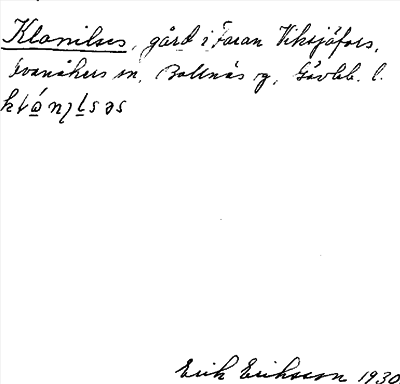 Klanilses, gård i Faran Viksjöfors,
Svanåkers sn, Bollnäs sg, Gävleb. l.
Erik Eriksson 1930